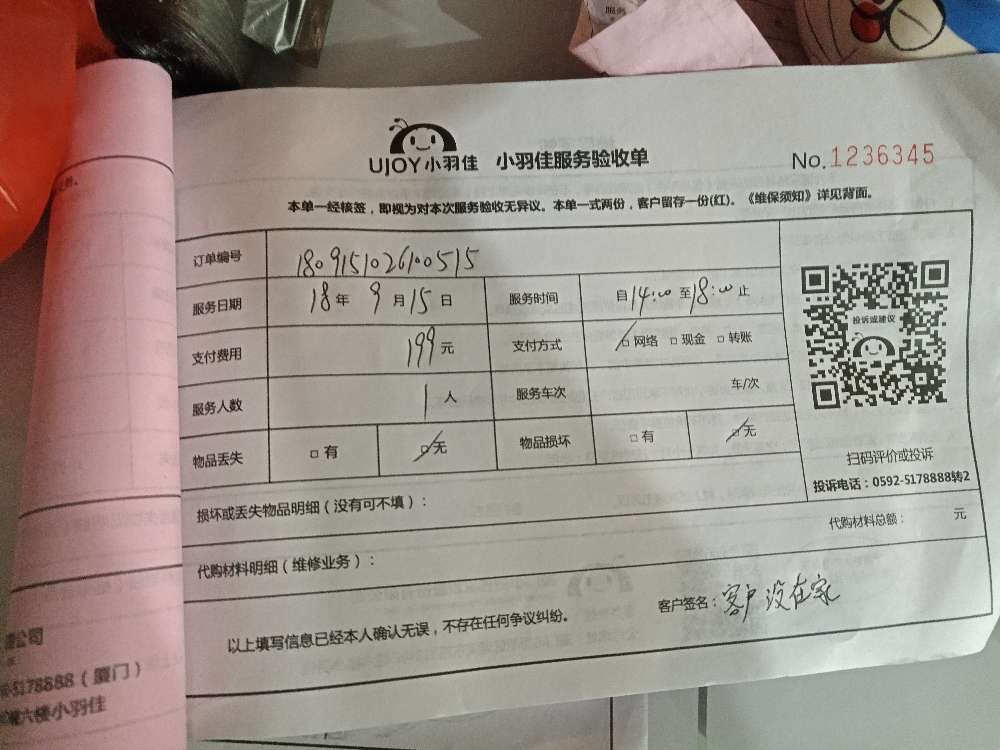 服务
UJOY小羽佳 小羽佳服务验收单 No.1236345
本单一经核签，即视为对本次服务验收无异议。本单一式两份，客户留存一份(红)。《维保须知》详见背面。
订单编号 1809151026100515
服务日期 18年 9月15日 服务时间 自14:00至18:00止
支付费用 199元 支付方式 □网络 □现金 □转账
服务人数 1人 服务车次 车/次
物品丢失 □有 □无 物品损坏 □有 □无
投诉或建议
扫码评价或投诉
投诉电话：0592-5178888转2
损坏或丢失物品明细（没有可不填）：
代购材料明细（维修业务）： 代购材料总额： 元
以上填写信息已经本人确认无误，不存在任何争议纠纷。 客户签名：客户没在家
公司
5178888（厦门）
六楼小羽佳